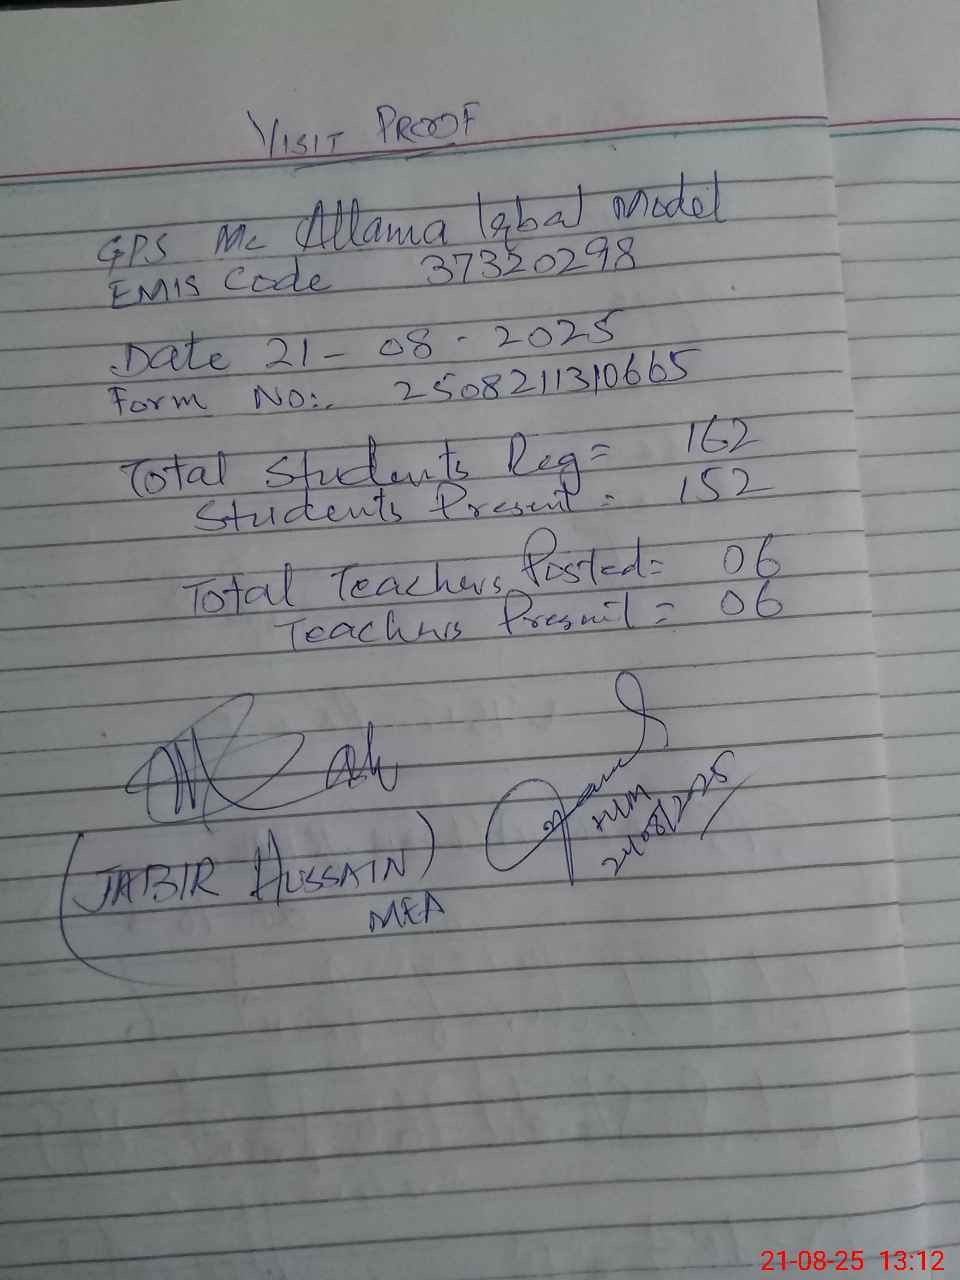 VISIT PROOF
GPS Mc Allama Iqbal Model
EMIS Code 37320298
Date 21-08-2025
Form No:. 2508211310665
Total Students Reg= 162
Students Present = 152
Total Teachers Posted= 06
Teachers Present = 06
21/08/2025
(JABIR HUSSAIN)
MEA
21-08-25 13:12